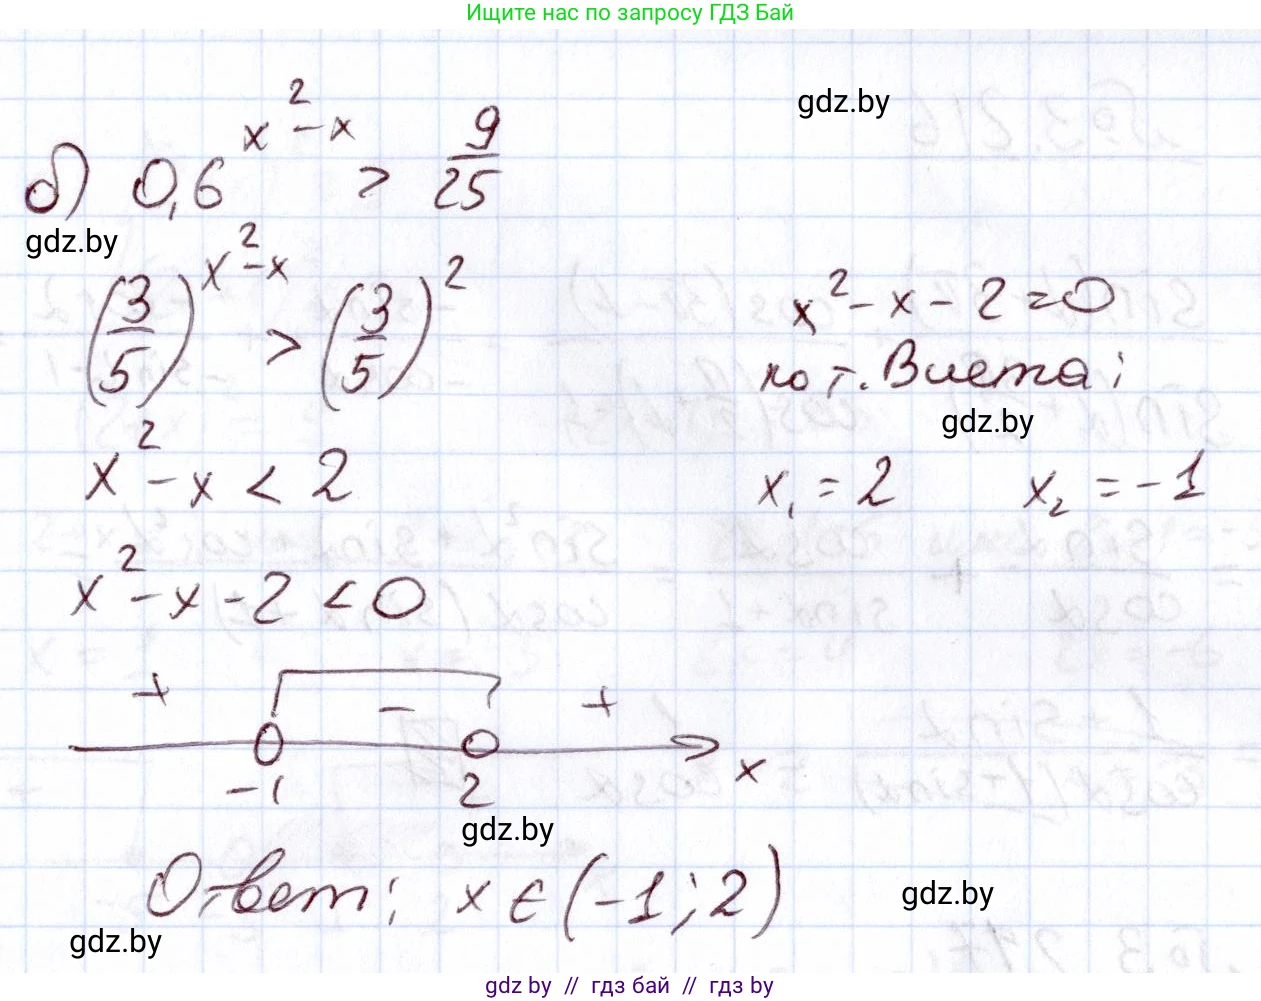 Ищите нас по запросу ГДЗ Бай
gdz.by
б) 0,6^(x²-x) > 9/25
gdz.by
(3/5)^(x²-x) > (3/5)²
x² - x - 2 = 0
по т. Виета:
gdz.by
x² - x < 2
x₁ = 2 x₂ = -1
x² - x - 2 < 0
+ - +
-1 2 x
gdz.by
Ответ: x ∈ (-1; 2)
gdz.by
gdz.by
gdz.by // гдз бай // гдз by